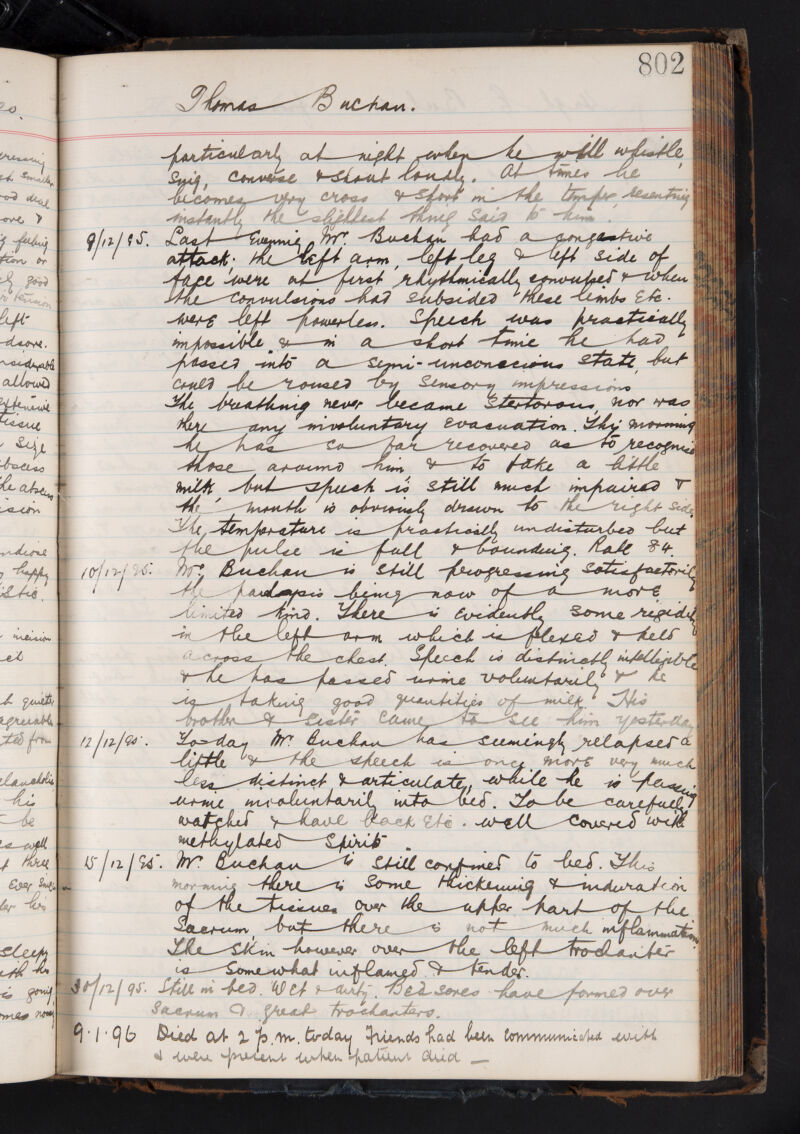 802
Thomas Buchan.
particularly at night when he will whistle,
sing, converse & shout loudly. At times he
becomes very cross & short in the temper, resenting
instantly the slightest thing said to him.
9/12/95. Last Evening Mr. Buchan had a congestive
attack; the left arm, left leg & left side of
face were at first rhythmically convulsed & when
the convulsions had subsided these limbs Etc.
were left powerless. Speech was practically
impossible & in a short time he had
passed into a semi-unconscious state, but
could be roused by sensory impressions
The breathing never became Stertorous, nor was
there any involuntary evacuation. This morning
he has so far recovered as to recognise
those around him & to take a little
milk, but speech is still much impaired &
the mouth is obviously drawn to the right side.
The temperature is practically undisturbed but
the pulse is full & bounding. Rate 84.
10/12/95. Mr. Buchan is still progressing satisfactorily
the paralysis being now of a more
limited kind. There is evidently some rigidity
in the left arm which is flexed & held
across the chest. Speech is distinctly intelligible
& he has passed urine voluntarily & he
is taking good quantities of milk. His
brother & sister came to see him yesterday
12/12/95. To-day Mr. Buchan has seemingly relapsed a
little & the speech is once more very much
less distinct & articulate, while he is passing
urine involuntarily into bed. To be carefully
watched & have back Etc. well covered with
methylated Spirit.
15/12/95. Mr. Buchan is still confined to bed. This
morning there is some thickening & induration
of the tissues over the upper part of the
Sacrum, but there is not much inflammation
The skin however over the left trochanter
is somewhat inflamed & tender.
30/12/95. Still in bed. Wet & dirty. Bed sores have formed over
sacrum & great trochanters.
9.1.96 Died at 2 p.m. today Friends had been communicated with
& were present when patient died —